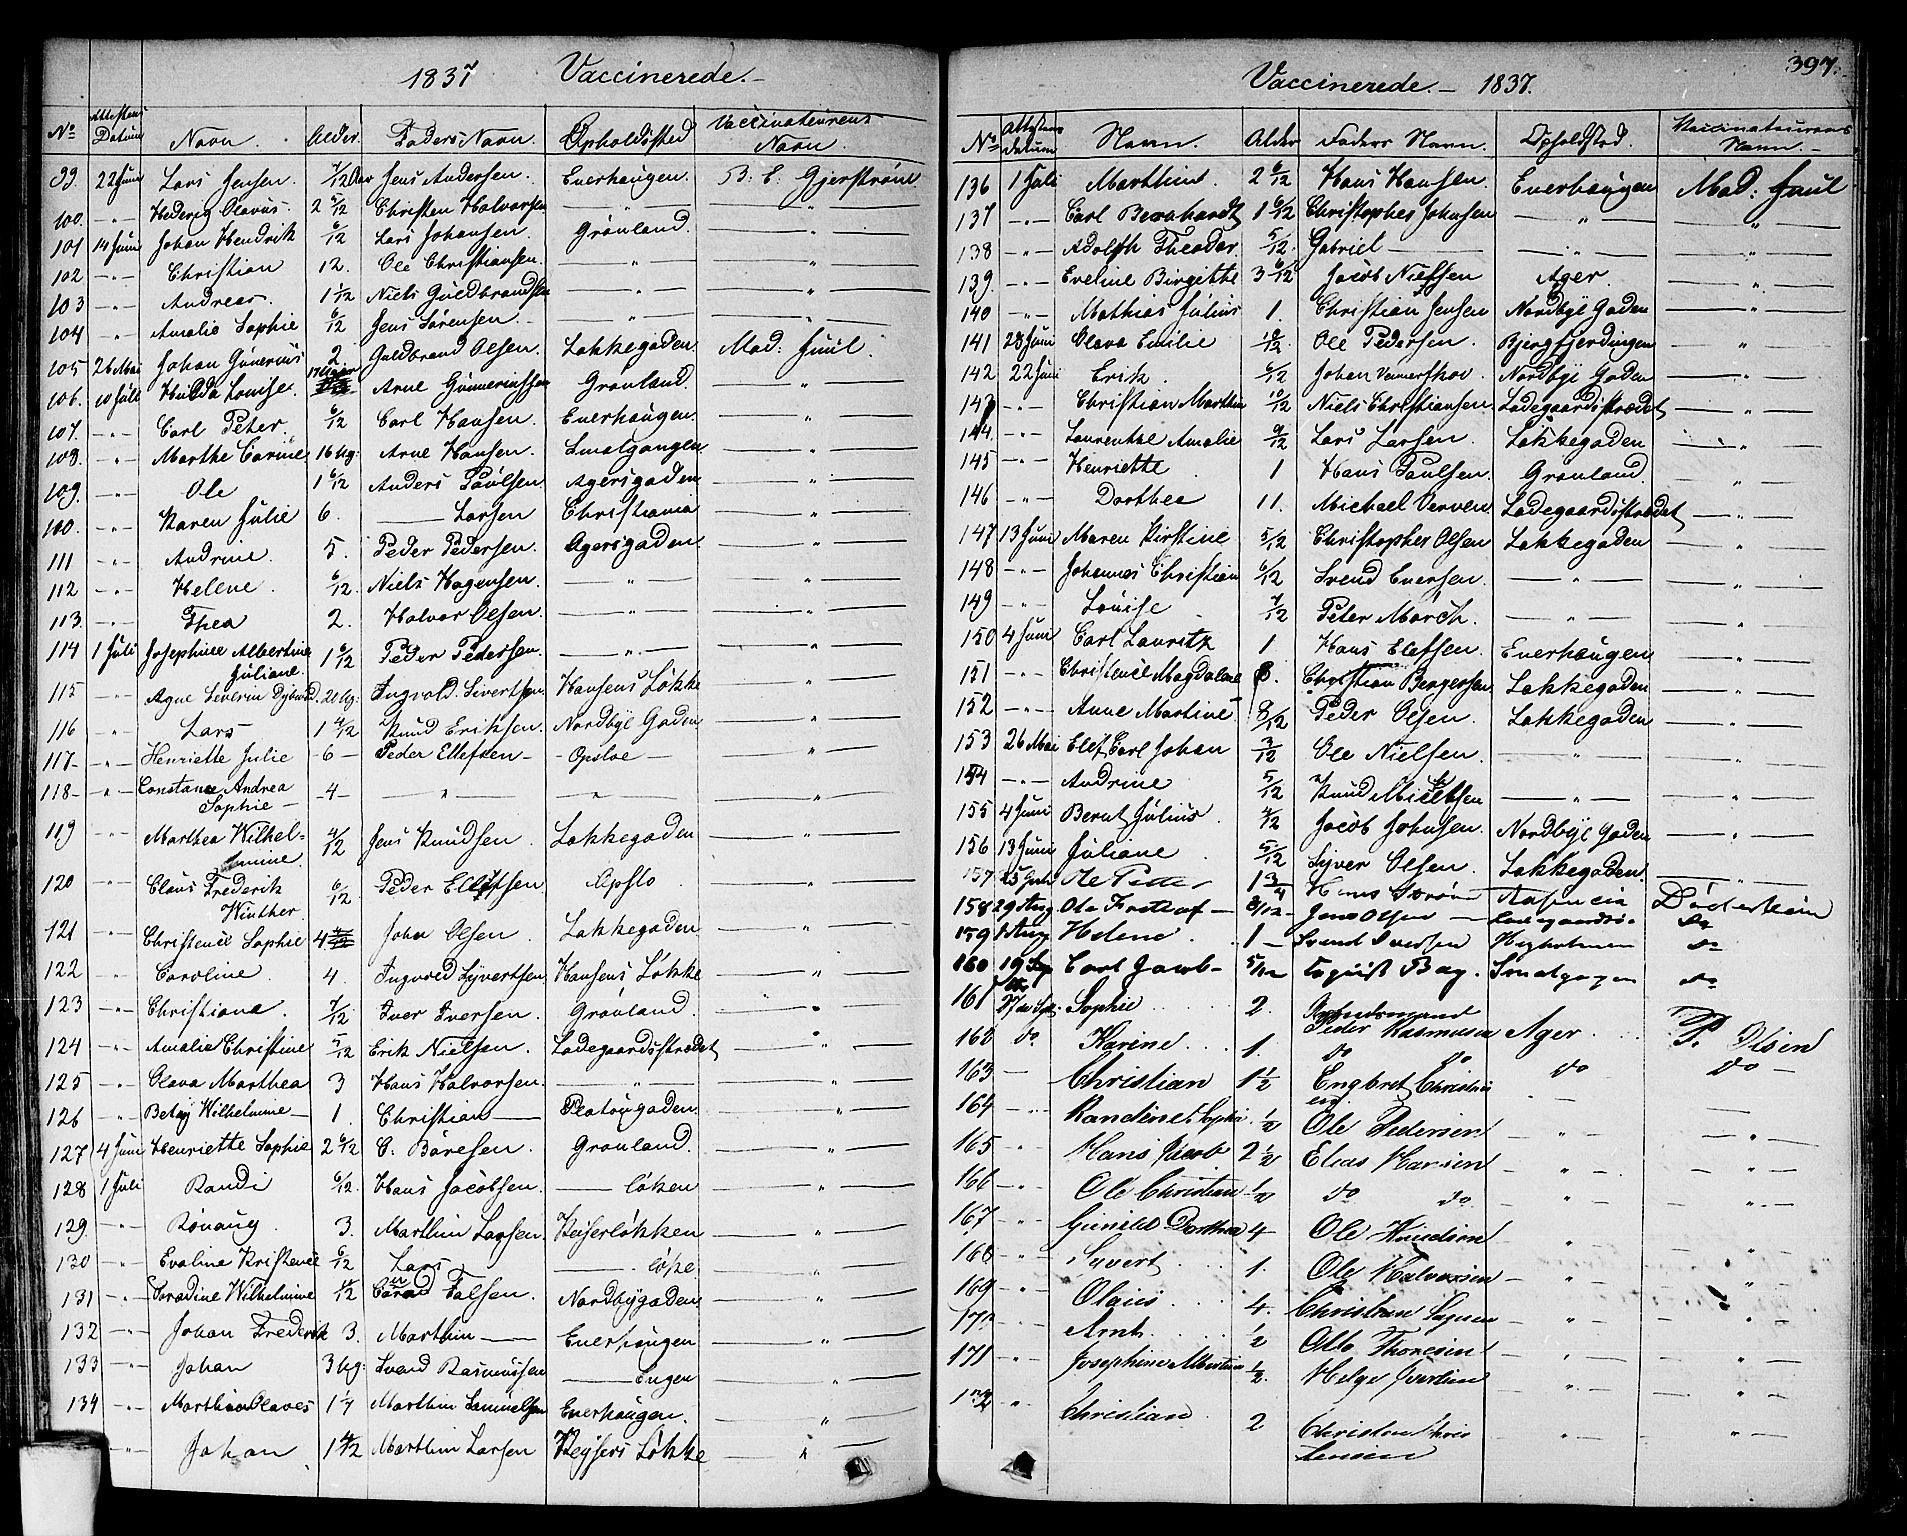 1837 Vaccinerede.
No Attestens Datum Navn. Alder Faders Navn. Opholdssted Vaccinateurens Navn.
99. 22 Juni Lars Jensen. 7/12 Aar Jens Andersen. Enerhaugen. B: E: Gjerstrøm
100. -"- Hedevig Olavus. 2 Christen Halvorsen -"- -"-
101 14 Juni Johan Hendrik 6/12 Lars Johansen. Grønland. -"-
102 -"- Christian 12. Ole Christiansen. -"- -"-
103 -"- Andreas. 1 1/12 Niels Guldbrandsen -"- -"-
104 -"- Amalie Sophie 6/12 Jens Sørensen. -"- -"-
105 26 Mai Johan Gunerius 2. Guldbrand Olsen. Lakkegaden. Mad: Juul.
106. 10 Juli Hulda Louise. Arne Gunneriussen Grønland. -"-
107. -"- Carl Peter. 6/12 Carl Hansen. Enerhaugen. -"-
108. -"- Marthe Carine 16 Ug: Arne Hansen. Smalgangen -"-
109. -"- Ole 1 6/12 Anders Paulsen Agersgaden -"-
110. -"- Karen Julie 6. —— Larsen Christiania -"-
111 -"- Andrine. 5. Peder Pedersen. Agersgaden -"-
112 -"- Helene. 6/12 Niels Hagensen. -"- -"-
113. -"- Thea 2. Halvor Olsen. -"- -"-
114 1 Juli Josephine Albertine Juliane. 1 6/12 Peder Pedersen. -"- -"-
115 -"- Agne Severin 20 Ug: Ingvold Sivertsen Hansens Løkke -"-
116 -"- Lars 1 4/12 Knud Eriksen. Nordbye Gaden -"-
117- -"- Henriette Julie -6- Peder Ellefsen- -Opsloe- -"-
118- -"- Constance Andrea Sophie- -4- -"- -"- -"-
119 -"- Marthea Wilhelmine 4/12 Jens Knudsen. Lakkegaden -"-
120 -"- Claus Frederik Winther. 6/12 Peder Ellefsen. Opslo -"-
121 -"- Christence Sophie 4 John Olsen. Lakkegaden -"-
122 -"- Caroline. 4. Ingvold Syvertsen Hansens Løkke -"-
123 -"- Christiane. 7/12 Iver Iversen. Grønland. -"-
124 -"- Amalie Christine 5/12 Erik Nielsen. Ladegaardsstrædet -"-
125 -"- Olava Marthea 3 Hans Halvorsen. -"- -"-
126 -"- Betsy Wilhelmine- 1. Christian —— Platougaden -"-
127 4 Juni Henriette Sophie 2 6/12 C. Børesen. Grønland. -"-
128 1 Juli Randi 6/12 Hans Jacobsen. —— Løken -"-
129. -"- Rønaug. 3. Marthin Larsen. Keiserløkken -"-
130 -"- Evaline Kristence 6/12 Lars —— Løke -"-
131 -"- Wilhelmine Conrad Falsen. Nordbygaden -"-
132 -"- Johan Frederik 3. Marthin —— Enerhaugen -"-
133 -"- Johan 3 Ug: Svend Rasmussen —— Engen -"-
134 -"- Marthin Olaves 1 Marthin Samuelsen Enerhaugen. -"-
-"- Johan 1 Marthin Larsen Keysers Løkke -"-
397.
Vaccinerede. 1837.
No Attestens datum Navn. Alder Faders Navn. Opholdsted. Vaccinateurens Navn.
136 1 Juli Marthin. 2 6/12 Hans Hansen. Enerhaugen Mad: Juul
137 -"- Carl Bernhardt 1 6/12 Christopher Johnsen -"- -"-
138 -"- Adolph Theodor. 5/12. Gabriel —— -"- -"-
139. -"- Eveline Birgitte 3 6/12 Jacob Nielsen Ager. -"-
140 -"- Mathias Julius 1. Christian Jensen Nordbye Gaden -"-
141 28 Juni Olava Emilie 10/12 Ole Pedersen. Bjergfjerdingen -"-
142 22 Juni Erik. 6/12 Johan Nordbye Gaden -"-
143 -"- Christian Marthin 10/12 Niels Christiansen Ladegaardsstrædet -"-
144. -"- Laurentze Amalie 9/12 Lars Larsen. Lakkegaden -"-
145 -"- Henriette 1 Hans Paulsen. Grønland. -"-
146 -"- Dorthea 11. Michael Ladegaardsstrædet -"-
147 13 Juni Maren Kirstine 5/12 Christopher Olsen Lakkegaden -"-
148 -"- Johannes Christian 6/12 Svend Eversen. -"- -"-
149 -"- Louise 7/12 Peter Mørch. -"- -"-
150 4 Juni Carl Lauritz 1. Hans Elefsen. Enerhaugen -"-
151 -"- Christence Magdalene 8. Christian Bergersen Lakkegaden -"-
152 -"- Anne Martine 8/12 Peder Olsen. Lakkegaden -"-
153 26 Mai Elef Carl Johan 3/12 Ole Nielsen -"- -"-
154 -"- Andrine 5/12 Knud Mickelsen -"- -"-
155 4 Juni Bernt Julius. Jacob Johnsen. Nordbye Gaden -"-
156 13 Juni Juliane 5/12 Syver Olsen Lakkegaden. -"-
157 25 Ole Peter 1 3/4 Hans Strøm Døderlein
158 29 Aug Ole 8/12 Jens Olsen Ladegaardsö. Do
159 1 Aug Helene. 1 Svend Iversen do
160 19 Sep Carl Jacob- 5/12 Bag. Smalgagen do
161 Sophie 2. Peder Rasmusen Ager P. Olsen
162 do Karine 1. do do do do
163 Christian 1 1/2 Engbret Christi -"-
164 -"- Randine Sophi. 1/2 Ole Pedersen -"- -"-
165 -"- Hans Jacob 2 1/2 Elias Hansen -"- -"-
166 -"- Ole Christian 1/2 do do -"- -"-
167 -"- Gunild Dorthea 4 Ole Knudsen -"- -"-
168 -"- Syvert 1. Ole Halvorsen -"- -"-
169 -"- Olaus 4. Christian -"- -"-
170 -"- Arnt 1/2 Otto Thoresen -"- -"-
171 -"- Josephine Albertine 1/2. Helge Iversen -"- -"-
172 -"- Christian 2 Christen Chris tensen -"- -"-